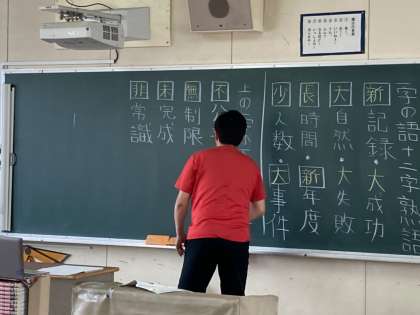 字の語+二字熟語
新記録・大成功
大自然・大失敗
長時間・新年度
少人数・大事件
上の字
不公
無制限
未完成
非常識